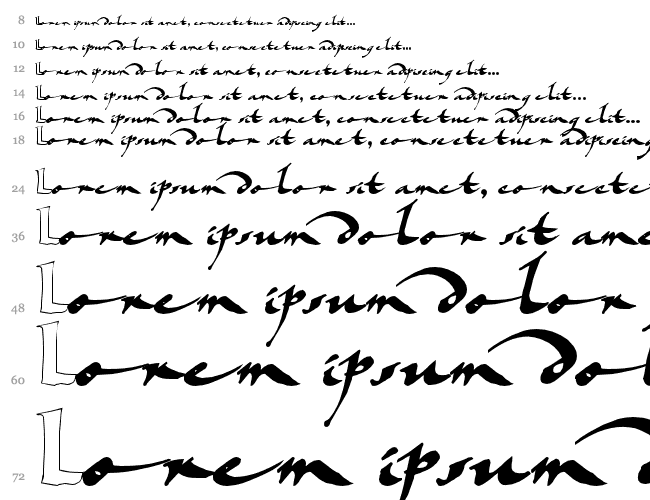 8 Lorem ipsum dolor sit amet, consectetuer adipiscing elit...
10 Lorem ipsum dolor sit amet, consectetuer adipiscing elit...
12 Lorem ipsum dolor sit amet, consectetuer adipiscing elit...
14 Lorem ipsum dolor sit amet, consectetuer adipiscing elit...
16 Lorem ipsum dolor sit amet, consectetuer adipiscing elit...
18 Lorem ipsum dolor sit amet, consectetuer adipiscing
24 Lorem ipsum dolor sit amet, consecte
36 Lorem ipsum dolor sit ame
48 Lorem ipsum dolor
60 Lorem ipsum dol
72 Lorem ipsum d